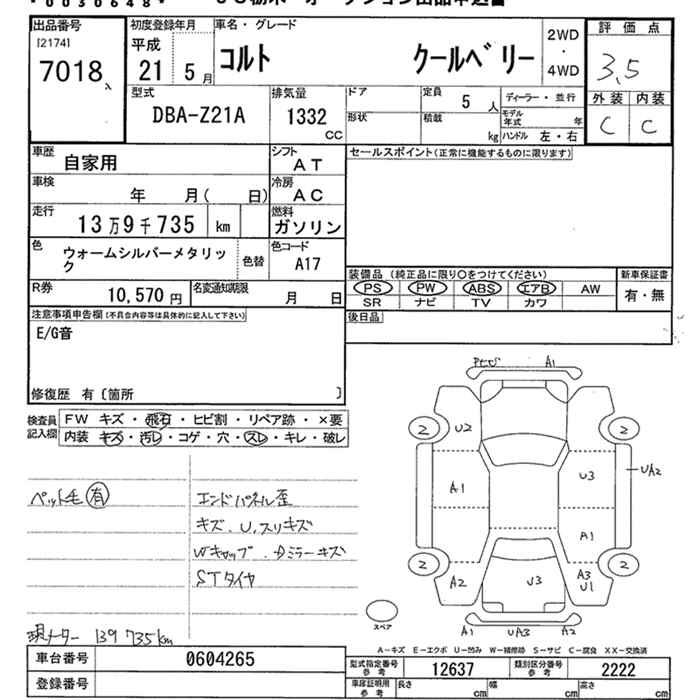 *0030648*
出品番号
[2174]
7018
初度登録年月
平成
21 5月
車名・グレード
コルト クールベリー
2WD
・
4WD
評価点
3,5
外装 内装
C C
型式
DBA-Z21A
排気量
1332
CC
ドア
形状
定員 5 人
積載 kg
ディーラー・並行
モデル年式 年
ハンドル 左・右
車歴 自家用
シフト AT
セールスポイント(正常に機能するものに限ります)
車検 年 月( 日)
冷房 AC
走行 13万9千735 km
燃料 ガソリン
色 ウォームシルバーメタリック
色替
色コード A17
R券 10,570円
名変通知期限 月 日
装備品 (純正品に限り○をつけてください)
PS PW ABS エアB AW
SR ナビ TV カワ
新車保証書
有・無
注意事項申告欄(不具合内容等は具体的に記入して下さい)
後日品
E/G音
修復歴 有〔箇所 〕
検査員記入欄
FW キズ・飛石・ヒビ割・リペア跡・×要
内装 キズ・汚レ・コゲ・穴・スレ・キレ・破レ
ペット毛 有
エンドパネル歪
キズ、U,スリキズ
Wキャップ、Dミラーキズ
STタイヤ
現メーター 139735km
A1
2 U2 2
A1 U3 UA2
A1
2 A2 U3 A3 U1 2
スペア
A1 UA3 A2
A-キズ E-エクボ U-凹み W-補修跡 S-サビ C-腐食 XX-交換済
車台番号 0604265
型式指定番号 参考 12637
類別区分番号 参考 2222
登録番号
車庫証明用 参考 長さ cm 幅 cm 高さ cm